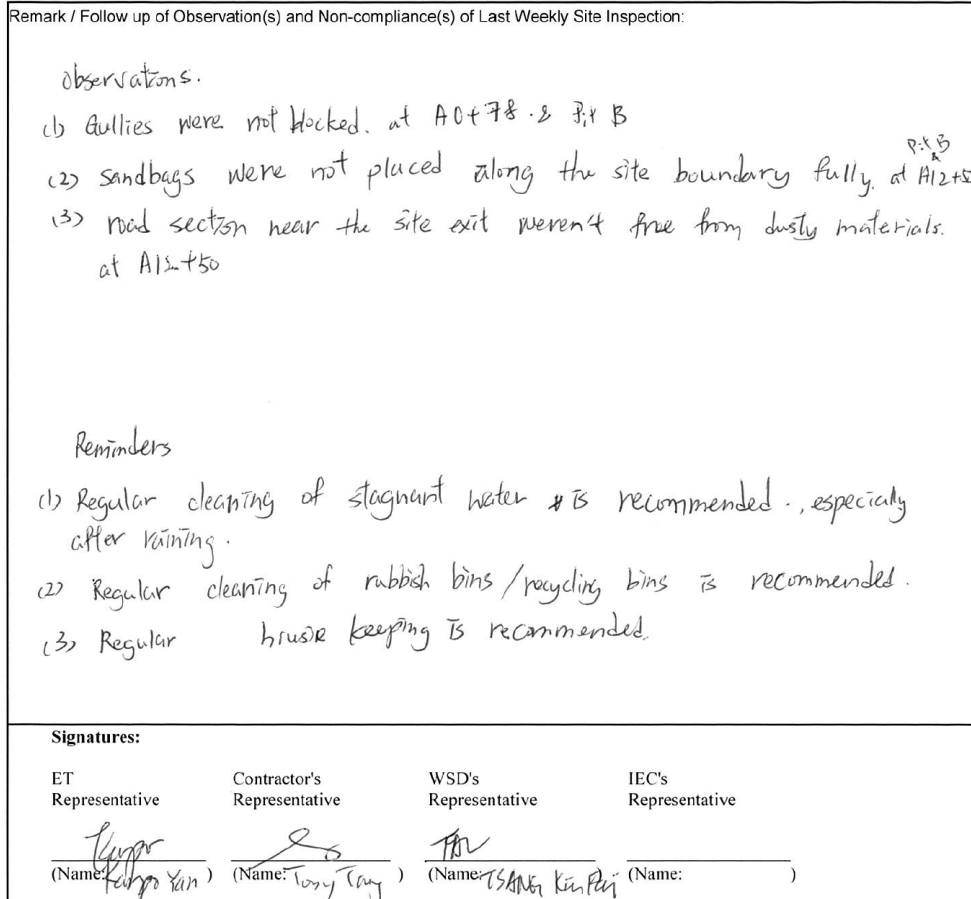 Remark / Follow up of Observation(s) and Non-compliance(s) of Last Weekly Site Inspection:
Observations.
(1) Gullies were not blocked. at A0+78 & Pit B
Pit B
(2) Sandbags were not placed along the site boundary fully. at & A12+50
(3) road section near the site exit weren't free from dusty materials.
at A12+50
Reminders
(1) Regular cleaning of stagnant water is recommended ., especially
after raining.
(2) Regular cleaning of rubbish bins / recycling bins is recommended.
(3) Regular house keeping is recommended.
Signatures:
ET Contractor's WSD's IEC's
Representative Representative Representative Representative
(Name: Yan ) (Name: Tony ) (Name: TSANG Kin ) (Name: )